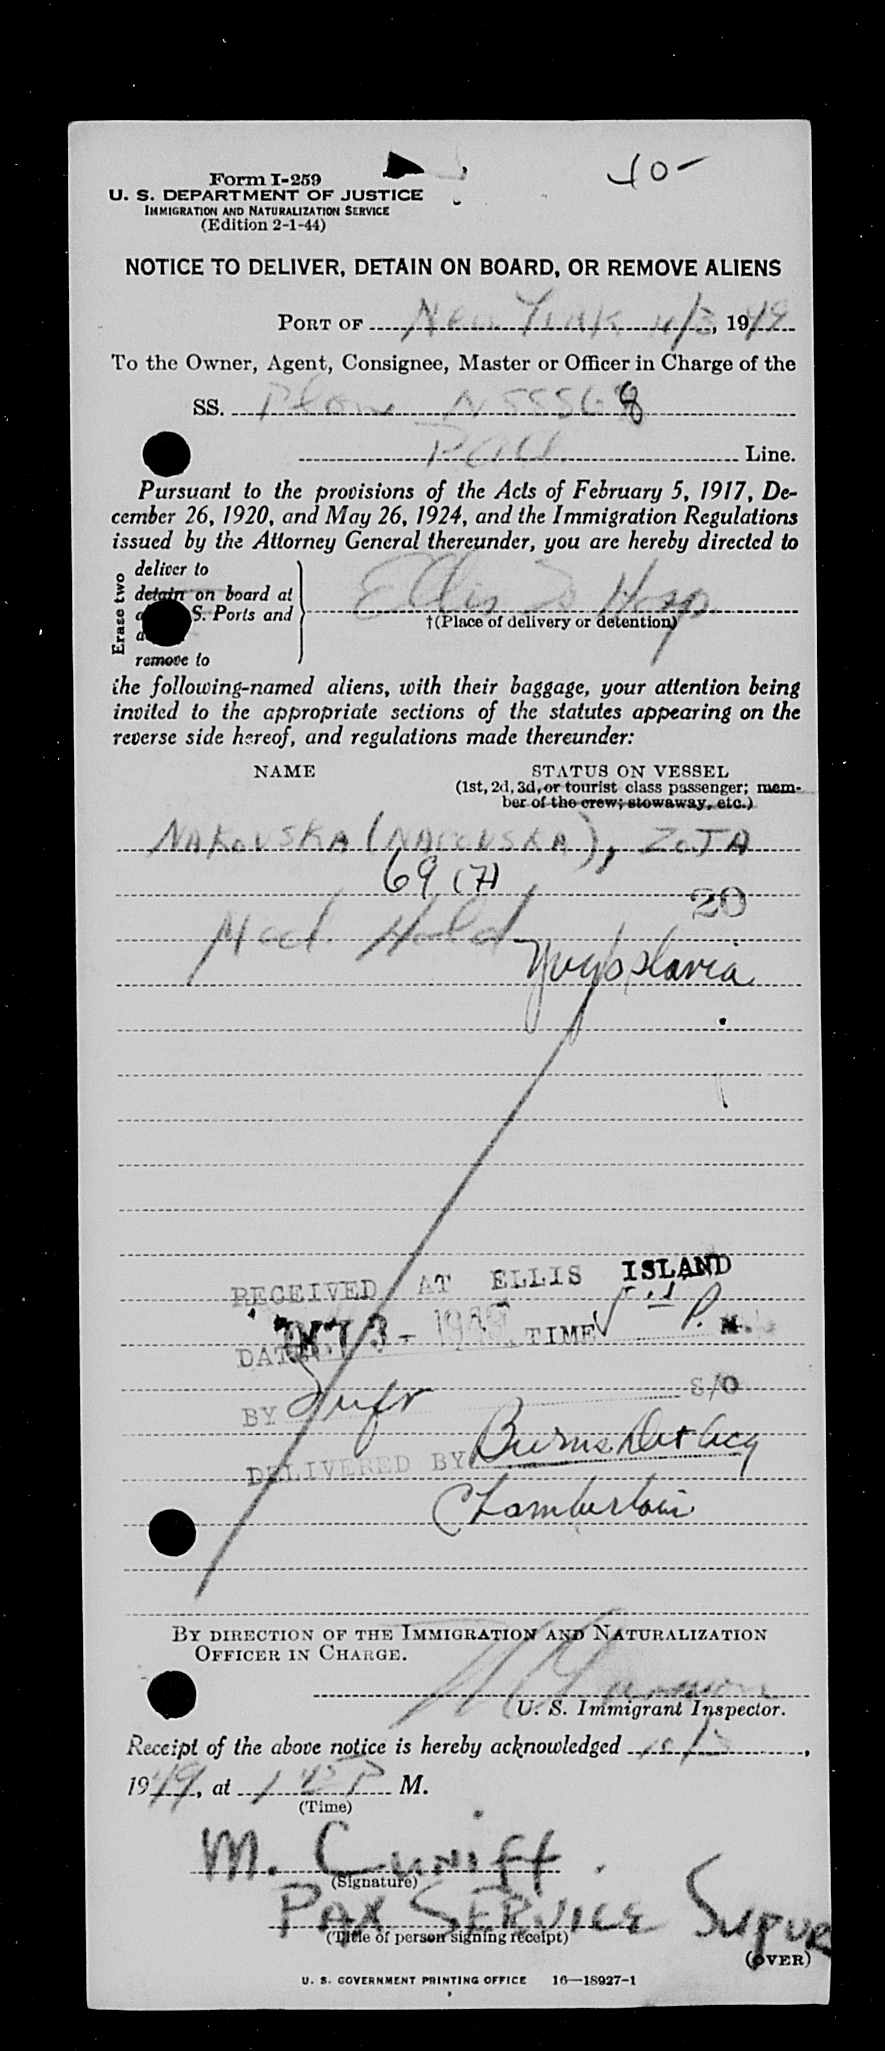 40-
Form I-259
U. S. DEPARTMENT OF JUSTICE
IMMIGRATION AND NATURALIZATION SERVICE
(Edition 2-1-44)
NOTICE TO DELIVER, DETAIN ON BOARD, OR REMOVE ALIENS
PORT OF New York 10/3, 1949
To the Owner, Agent, Consignee, Master or Officer in Charge of the
SS. Plane N 55568
Paa Line.
Pursuant to the provisions of the Acts of February 5, 1917, De-
cember 26, 1920, and May 26, 1924, and the Immigration Regulations
issued by the Attorney General thereunder, you are hereby directed to
Erase two
deliver to
detain on board at
S. Ports and
remove to
Ellis Is Hosp
†(Place of delivery or detention)
the following-named aliens, with their baggage, your attention being
invited to the appropriate sections of the statutes appearing on the
reverse side hereof, and regulations made thereunder:
NAME
STATUS ON VESSEL
(1st, 2d, 3d, or tourist class passenger; mem-
ber of the crew; stowaway, etc.)
NAKOVSKA (NACOVSKA), ZOJA
69 (7)
20
Med. Hold
Yugoslavia
RECEIVED AT ELLIS ISLAND
DATE OCT 3 - 1949 TIME P. M.
BY S/O
DELIVERED BY Burns Det Acy
Chamberlain
BY DIRECTION OF THE IMMIGRATION AND NATURALIZATION
OFFICER IN CHARGE.
U. S. Immigrant Inspector.
Receipt of the above notice is hereby acknowledged 10/3,
1949, at P M.
(Time)
M. Cuniff
(Signature)
PAX SERVICE SUPVR
(Title of person signing receipt)
(OVER)
U. S. GOVERNMENT PRINTING OFFICE 16—18927-1